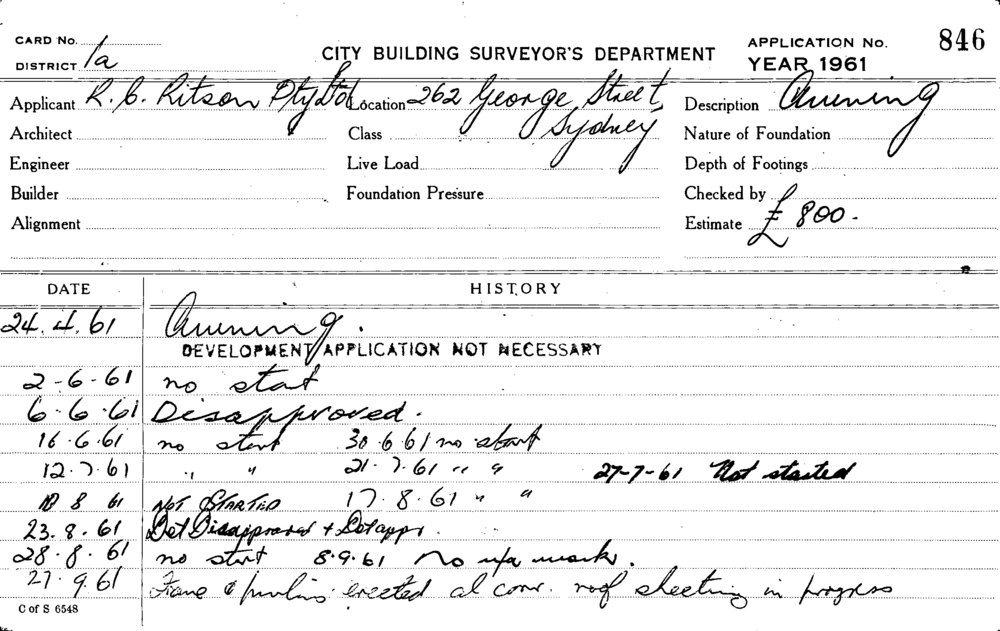 CARD No. CITY BUILDING SURVEYOR'S DEPARTMENT APPLICATION No. 846
DISTRICT 1a YEAR 1961
Applicant R. C. Ritson Pty Ltd Location 262 George Street, Description Awning
Architect Class Sydney Nature of Foundation
Engineer Live Load Depth of Footings
Builder Foundation Pressure Checked by
Alignment Estimate £ 800.
DATE HISTORY
24.4.61 Awning.
DEVELOPMENT APPLICATION NOT NECESSARY
2-6-61 no start
6.6.61 Disapproved.
16.6.61 no start 30.6.61 no start
12.7.61 " " 21.7.61 " " 27-7-61 Not started
8 61 NOT STARTED 17.8.61 " "
23.8.61 Disapproved +
28.8.61 no start 8.9.61 No work.
27.9.61 & purlins erected roof sheeting in progress
C of S 6548